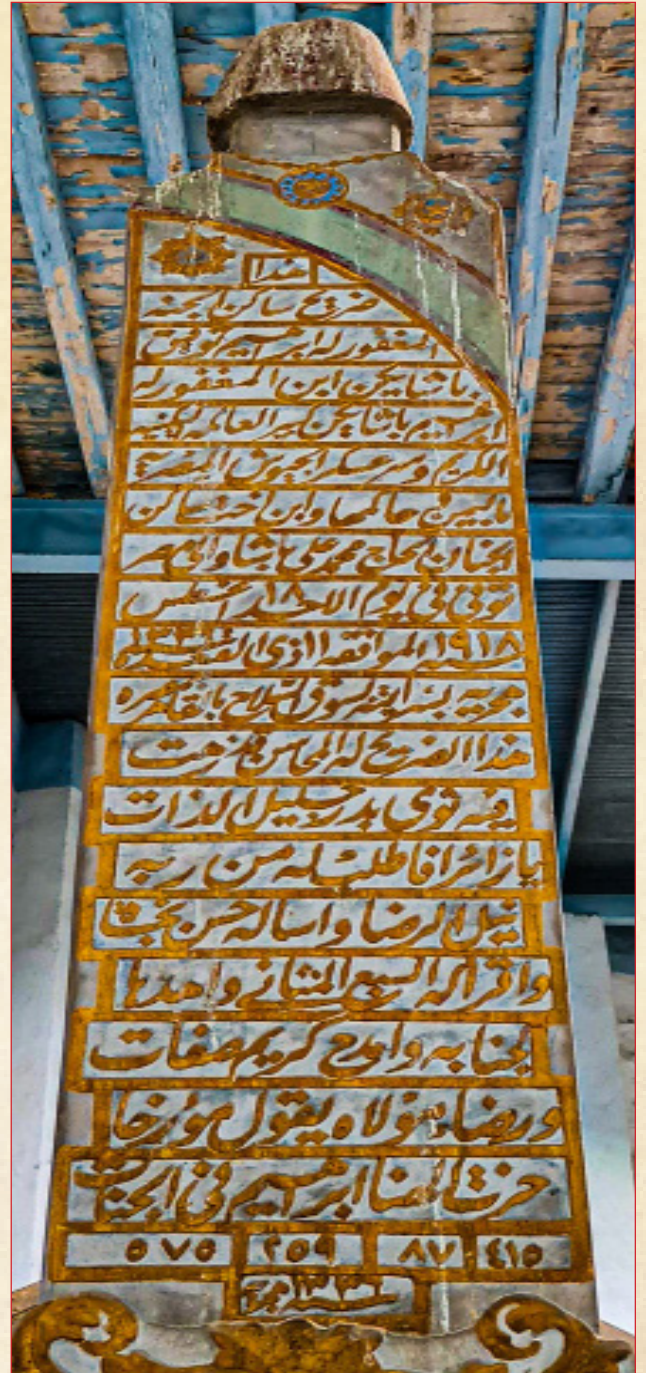 هذا
ضريح ساكن الجنه
المغفور له ابرهيم توفيق
باشا يكن ابن المغفور له
ابرهيم باشا يكن سر
الكريم وسر عسكر الجيوش المصريه
باليمن حاكمها وابن اخت ساكن
الجنان الحاج محمد علي باشا والي مصر
توفى في يوم الاحد ١٨ اغسطس
سنة ١٩١٨ الموافقه ١١ ذي القعده سنة ١٣٣٦
هجريه بسراية بسوق السلاح بالقاهره
هذا الضريح له المحاسن قد زهت
وبه ثوى بدر جليل الذات
يا زائرا فاطلب له من ربه
نيل الرضا واساله حسن نجاة
واقرا له السبع المثاني واهدها
لجنابه وامدح كريم صفات
ورضاء مولاه يقول مؤرخا
حزت الهنا ابرهيم في الجنات
٤١٥ ٨٧ ٢٥٩ ٥٧٥
سنة ١٣٣٦ هجرية